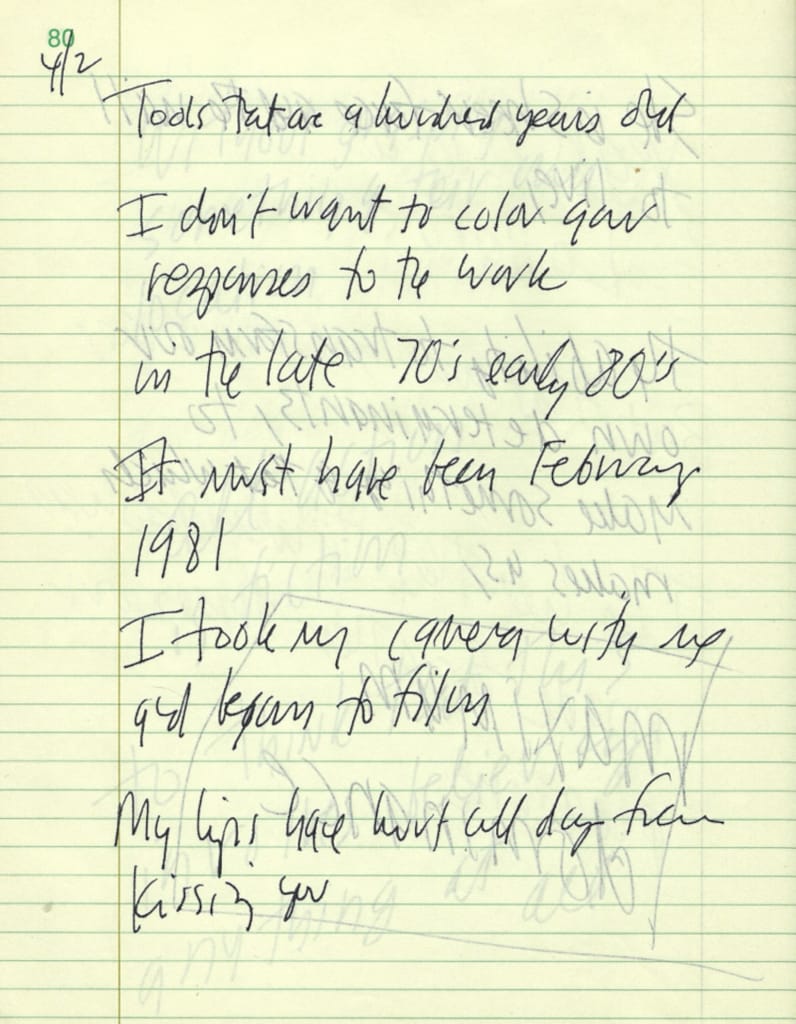 80
4/2
Tools that are a hundred years old
I don't want to color your
responses to the work
in the late 70's early 80's
It must have been February
1981
I took my camera with me
and began to film
My lips have hurt all day from
kissing you